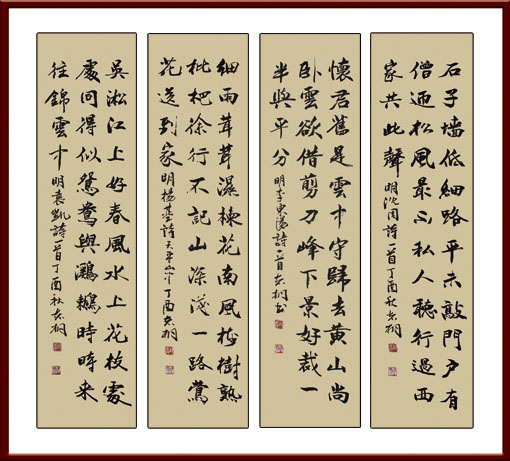 石子墙低細路平未敲門户有
僧迎松風最不私人聽行過西
家共此聲 明沈周詩一首丁酉秋桐
懷君舊是雲中守歸去黄山尚
卧雲欲借剪刀峰下景好裁一
半與平分 明李東陽詩一首桐书
細雨茸茸濕楝花南風樹樹熟
枇杷徐行不記山深淺一路鶯
花送到家 明楊基詩天平山中丁酉桐
吳淞江上好春風水上花枝處
處同得似鴛鴦與鸂鶒時時来
往錦雲中 明袁凱詩一首丁酉秋桐